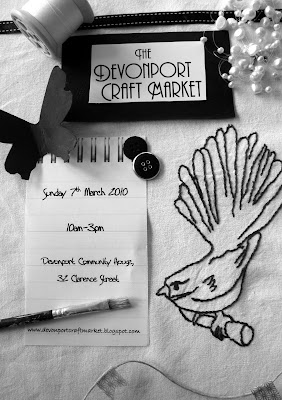 THE
DEVONPORT
CRAFT MARKET
Sunday 7th March 2010
10am-3pm
Devonport Community House,
32 Clarence Street
www.devonportcraftmarket.blogspot.com